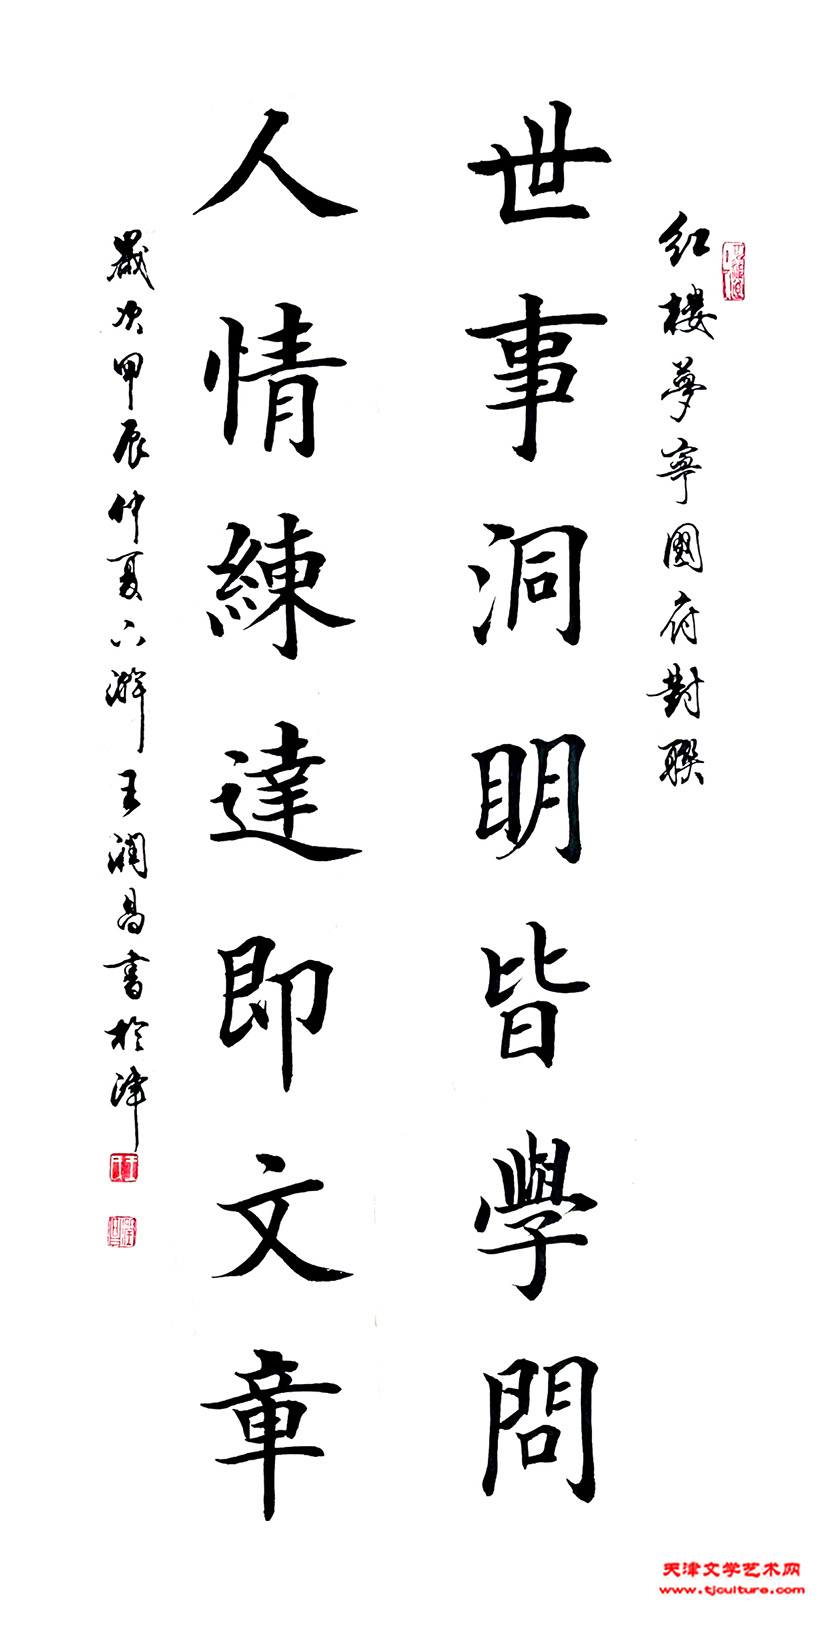 红楼夢寧國府對聯
世事洞眀皆學問
人情練達即文章
歲次甲辰仲夏下澣王潤昌書於津
天津文学艺术网
www.tjculture.com